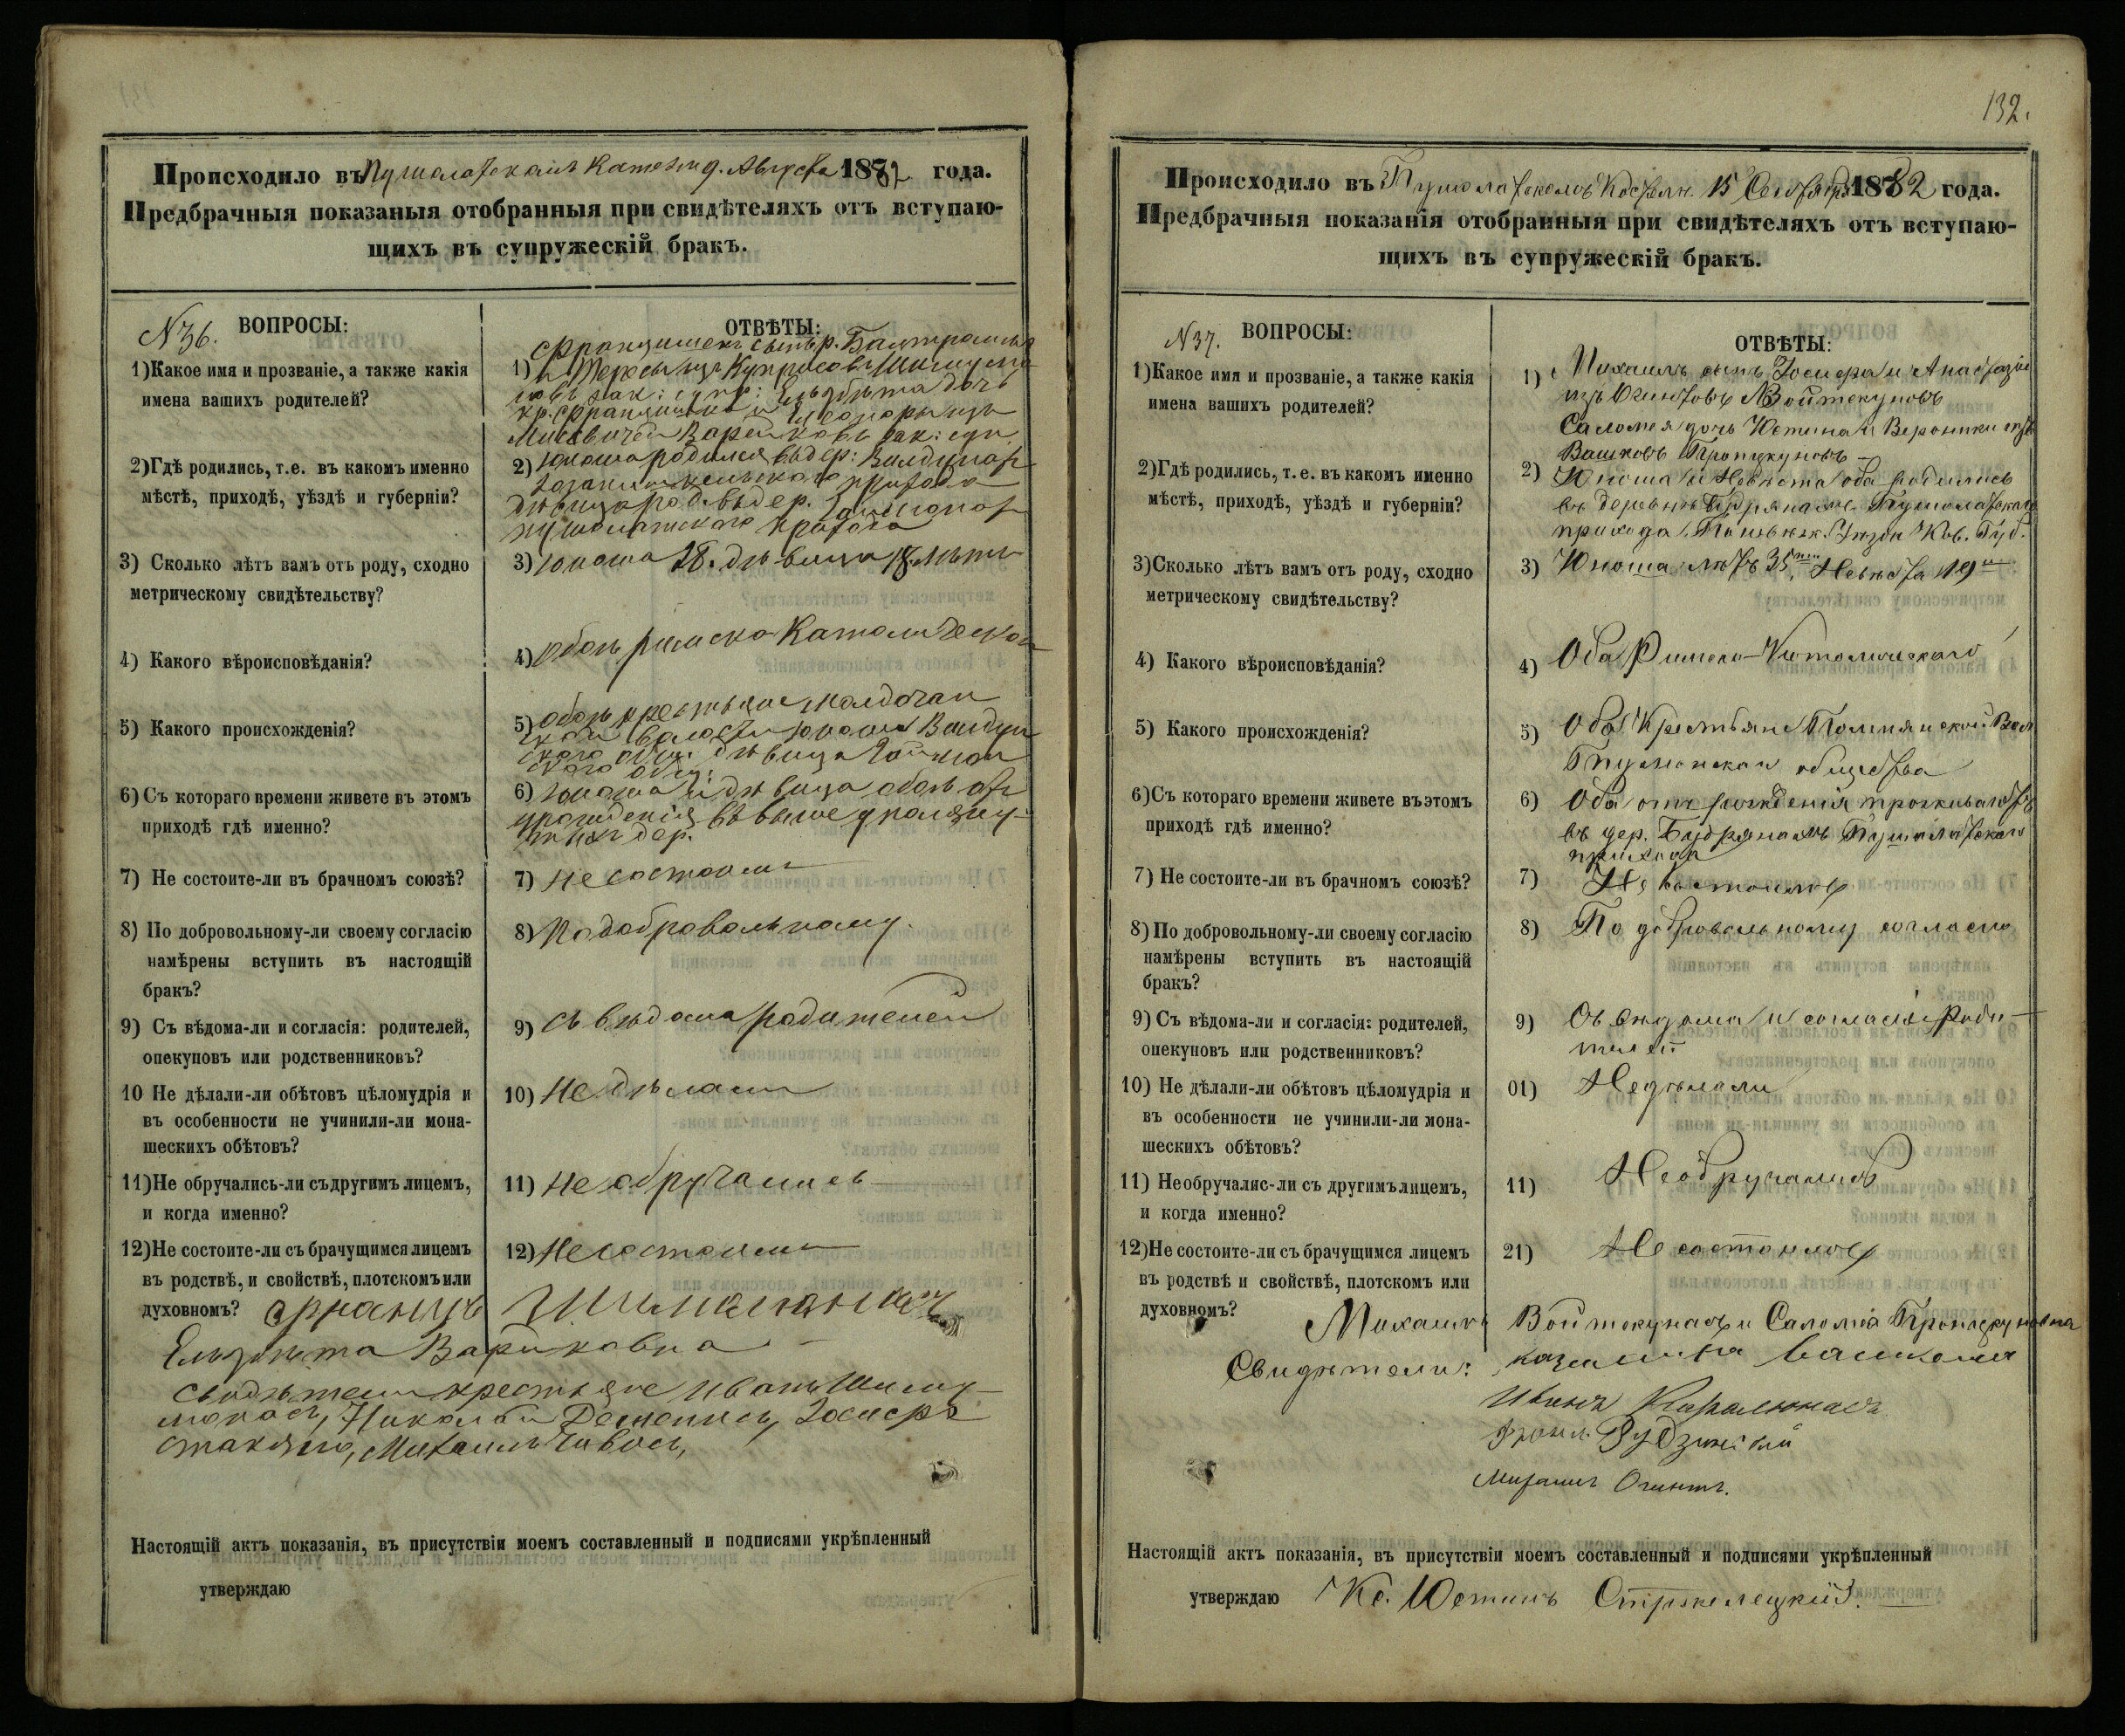 Происходило въ Пушолатскомъ Костел 9. Августа 1882 года.
Предбрачныя показаныя отобранныя при свидѣтеляхъ отъ вступаю-
щихъ въ супружескій бракъ.
N 36. ВОПРОСЫ:
1) Какое имя и прозваніе, а также какія
имена вашихъ родителей?
2) Гдѣ родились, т.е. въ какомъ именно
мѣстѣ, приходѣ, уѣздѣ и губерніи?
3) Сколько лѣтъ вамъ отъ роду, сходно
метрическому свидѣтельству?
4) Какого вѣроисповѣданія?
5) Какого происхожденія?
6) Съ котораго времени живете въ этомъ
приходѣ гдѣ именно?
7) Не состоите-ли въ брачномъ союзѣ?
8) По добровольному-ли своему согласію
намѣрены вступить въ настоящій
бракъ?
9) Съ вѣдома-ли и согласія: родителей,
опекуповъ или родственниковъ?
10 Не дѣлали-ли обѣтовъ цѣломудрія и
въ особенности не учинили-ли мона-
шескихъ обѣтовъ?
11) Не обручались-ли съ другимъ лицемъ,
и когда именно?
12) Не состоите-ли съ брачущимся лицемъ
въ родствѣ, и свойствѣ, плотскомъ или
духовномъ?
ОТВѢТЫ:
1) Францишекъ сынъ
и Терессы изъ Купрасовъ
зак: супр: Ельзбета дочь
кр. Францишка и Елеоноры изъ
зак: суп.
2) Юноша родился въ дер:
прихода
дѣвица род. въ дер.
пушолатского прихода
3) юноша 28. дѣвица 18. лѣтъ
4) обоѣ римско Католической
5) обоѣ крестьяне
волости юноша
ского общ. дѣвица
ского общ:
6) юноша и дѣвица обоѣ отъ
урождения въ выше
дер.
7) не состоимъ
8) по добровольному.
9) съ вѣдома родителей
10) не дѣлали
11) не обручались
12) не состоимъ
Францъ
Ельзбета Варнковна
свидѣтели крестьяне Иванъ
Николай Іосифъ
Михаилъ
Настоящій актъ показанія, въ присутствіи моемъ составленный и подписями укрѣпленный
утверждаю
132.
Происходило въ Пушолатскомъ Костелѣ. 15 Сентября 1882 года.
Предбрачныя показанія отобранныя при свидѣтеляхъ отъ вступаю-
щихъ въ супружескій бракъ.
N 37. ВОПРОСЫ:
1) Какое имя и прозваніе, а также какія
имена вашихъ родителей?
2) Гдѣ родились, т.е. въ какомъ именно
мѣстѣ, приходѣ, уѣздѣ и губерніи?
3) Сколько лѣтъ вамъ отъ роду, сходно
метрическому свидѣтельству?
4) Какого вѣроисповѣданія?
5) Какого происхожденія?
6) Съ котораго времени живете въ этомъ
приходѣ гдѣ именно?
7) Не состоите-ли въ брачномъ союзѣ?
8) По добровольному-ли своему согласію
намѣрены вступить въ настоящій
бракъ?
9) Съ вѣдома-ли и согласія: родителей,
опекуповъ или родственниковъ?
10) Не дѣлали-ли обѣтовъ цѣломудрія и
въ особенности не учинили-ли мона-
шескихъ обѣтовъ?
11) Необручалис-ли съ другимъ лицемъ,
и когда именно?
12) Не состоите-ли съ брачущимся лицемъ
въ родствѣ и свойствѣ, плотскомъ или
духовномъ?
ОТВѢТЫ:
1) Михаилъ сынъ Іосифа и Анастазіи
изъ Огинтовъ Войтекуновъ
Саломея дочь Юстина и Вероники изъ
Вашковъ
2) Юноша и Невѣста оба родились
въ деревнѣ Будрянахъ Пушолатскаго
прихода Поневѣж. Уѣзда Ков. Губ.
3) Юноша лѣтъ 35, Невѣста 19
4) Оба Римско-Католическаго
5) Оба Крестьяне Помпянской Вол
общества
6) Оба отъ рожденія проживаютъ
въ дер. Будрянахъ Пушолатскаго
прихода
7) Не состоимъ
8) По добровольному согласію
9) Съ вѣдома и согласія роди-
телей
01) Недѣлали
11) Необручались
21) Не состоимъ
Михаилъ Войтекунасъ и Саломея
Свидѣтели:
Иванъ
Франц.
Михаилъ Огинтъ.
Настоящій актъ показанія, въ присутствіи моемъ составленный и подписями укрѣпленный
утверждаю Кс. Юстинъ Стржелецкій.